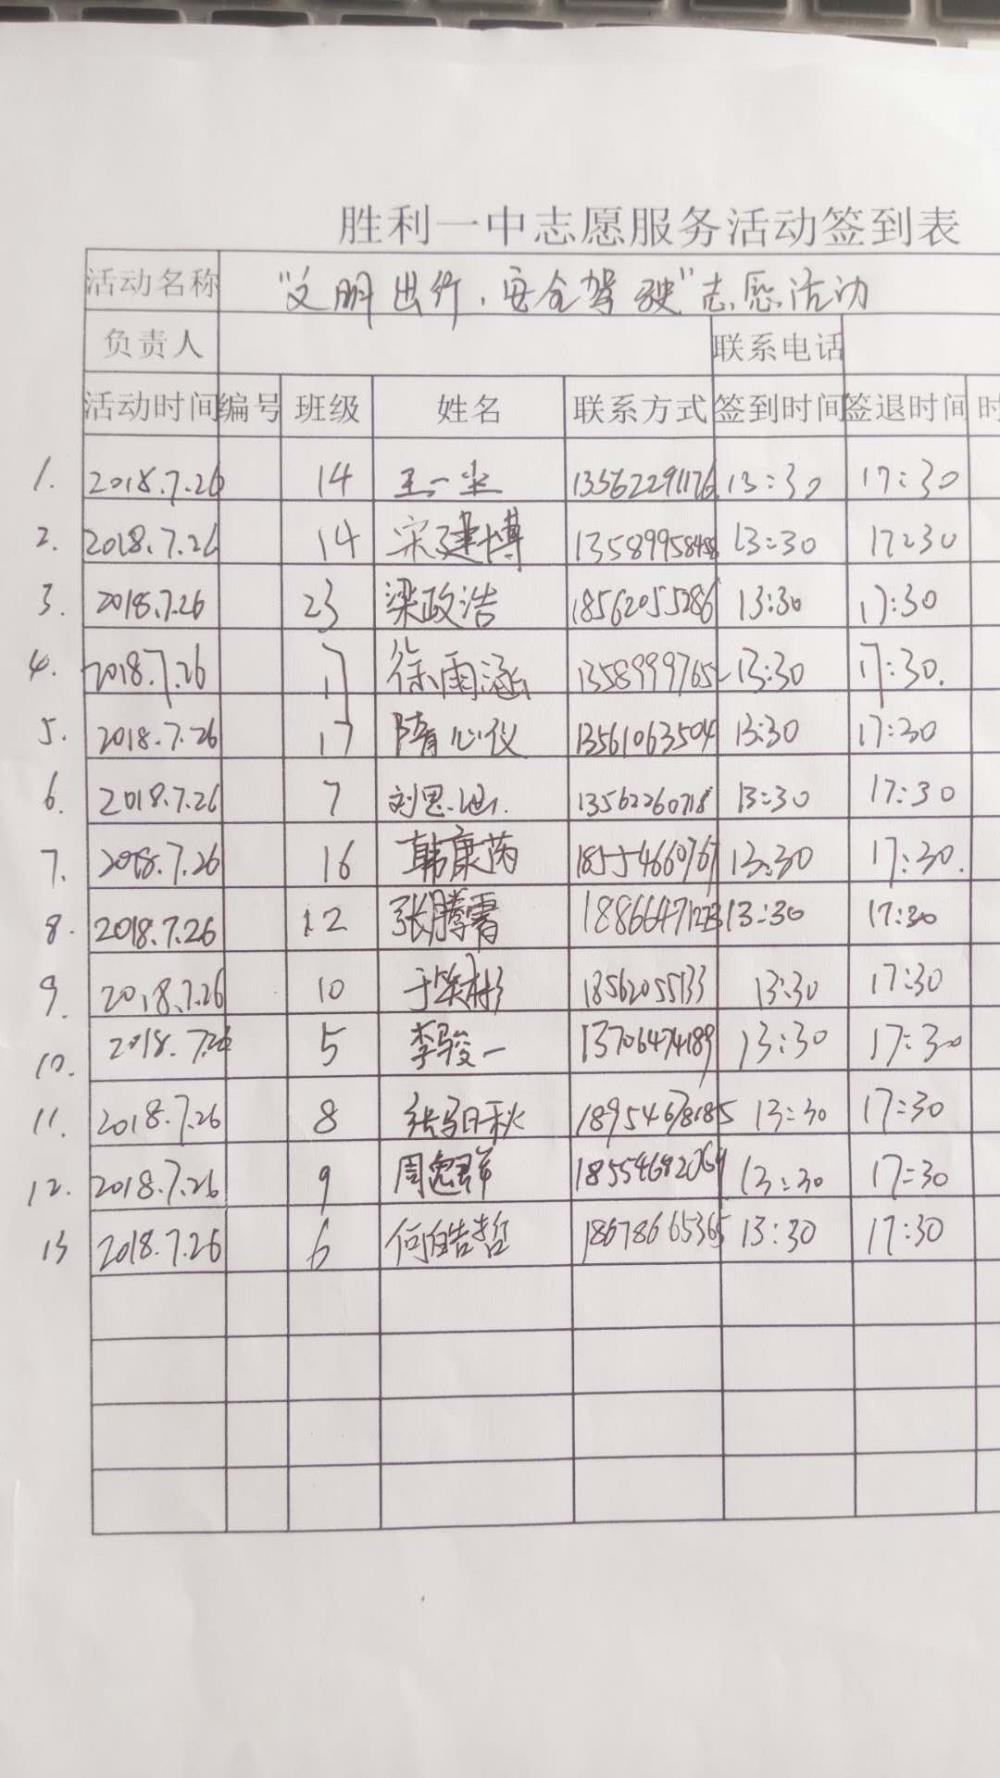 胜利一中志愿服务活动签到表
活动名称 "文明出行,安全驾驶"志愿活动
负责人 联系电话
活动时间 编号 班级 姓名 联系方式 签到时间 签退时间 时
1. 2018.7.26 14 王一尘 13562291176 13:30 17:30
2. 2018.7.26 14 宋建博 13:30 17:30
3. 2018.7.26 23 梁政浩 18562055286 13:30 17:30
4. 2018.7.26 17 徐雨涵 13:30 17:30.
5. 2018.7.26 17 隋心仪 13561063504 13:30 17:30
6. 2018.7.26 7 刘思 13562260718 13:30 17:30
7. 2018.7.26 16 韩康芮 18554660767 13:30 17:30.
8. 2018.7.26 12 张腾霄 13:30 17:30
9. 2018.7.26 10 于 18562055133 13:30 17:30
10. 2018.7.26 5 李骏一 13706474189 13:30 17:30
11. 2018.7.26 8 秋 18954678185 13:30 17:30
12. 2018.7.26 9 周 13:30 17:30
13 2018.7.26 6 何皓哲 18678665365 13:30 17:30